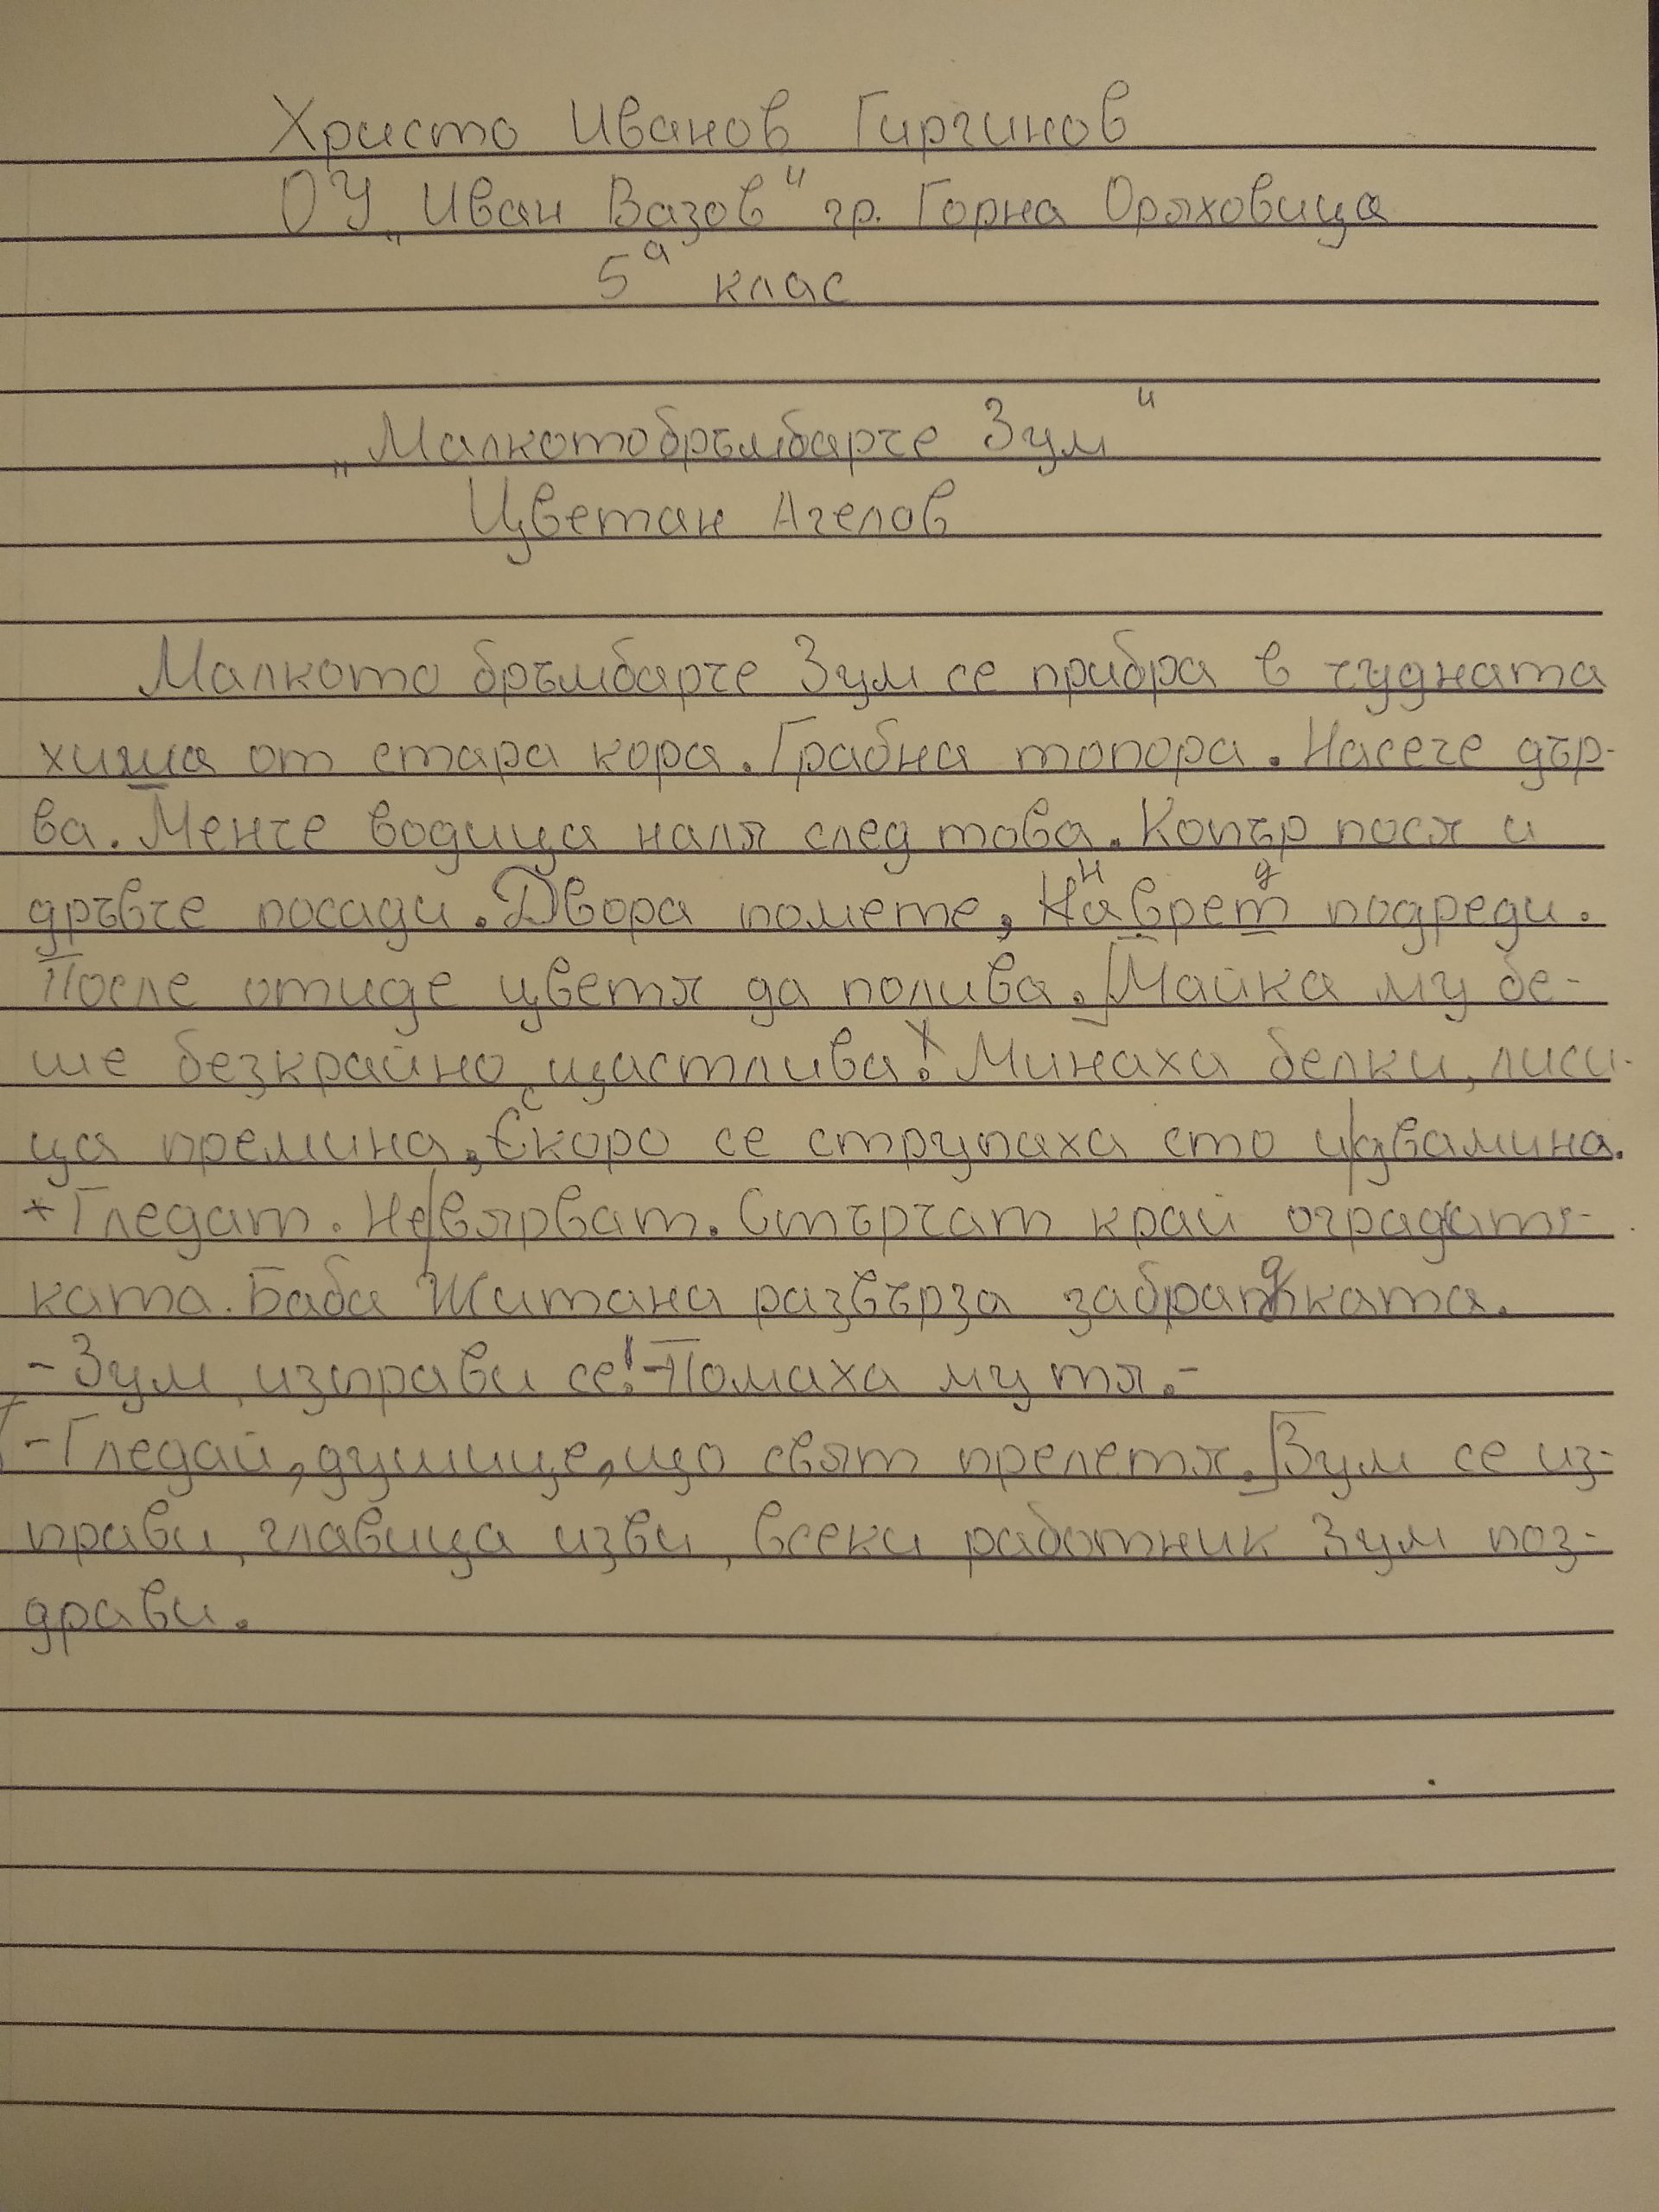 Христо Иванов Гиргинов
ОУ „Иван Вазов“ гр. Горна Оряховица
5а клас
„Малкотобръмбарче Зум“
Цветан Агелов
Малкото бръмбарче Зум се прибра в чудната
хижа от стара кора. Грабна топора. Насече дър-
ва. Менче водица наля след това. Копър пося и
дръвче посади. Двора помете, навред подреди.
После отиде цветя да полива. Майка му бе-
ше безкрайно щастлива! Минаха белки, лиси-
ца премина, скоро се струпаха сто и двамина.
Гледат. Не вярват. Стърчат край оградат-
ката. Баба Житана развърза забрадката.
- Зум, изправи се! - Помаха му тя. -
- Гледай, душице, що свят прелетя. Зум се из-
прави, главица изви, всеки работник Зум поз-
драви.